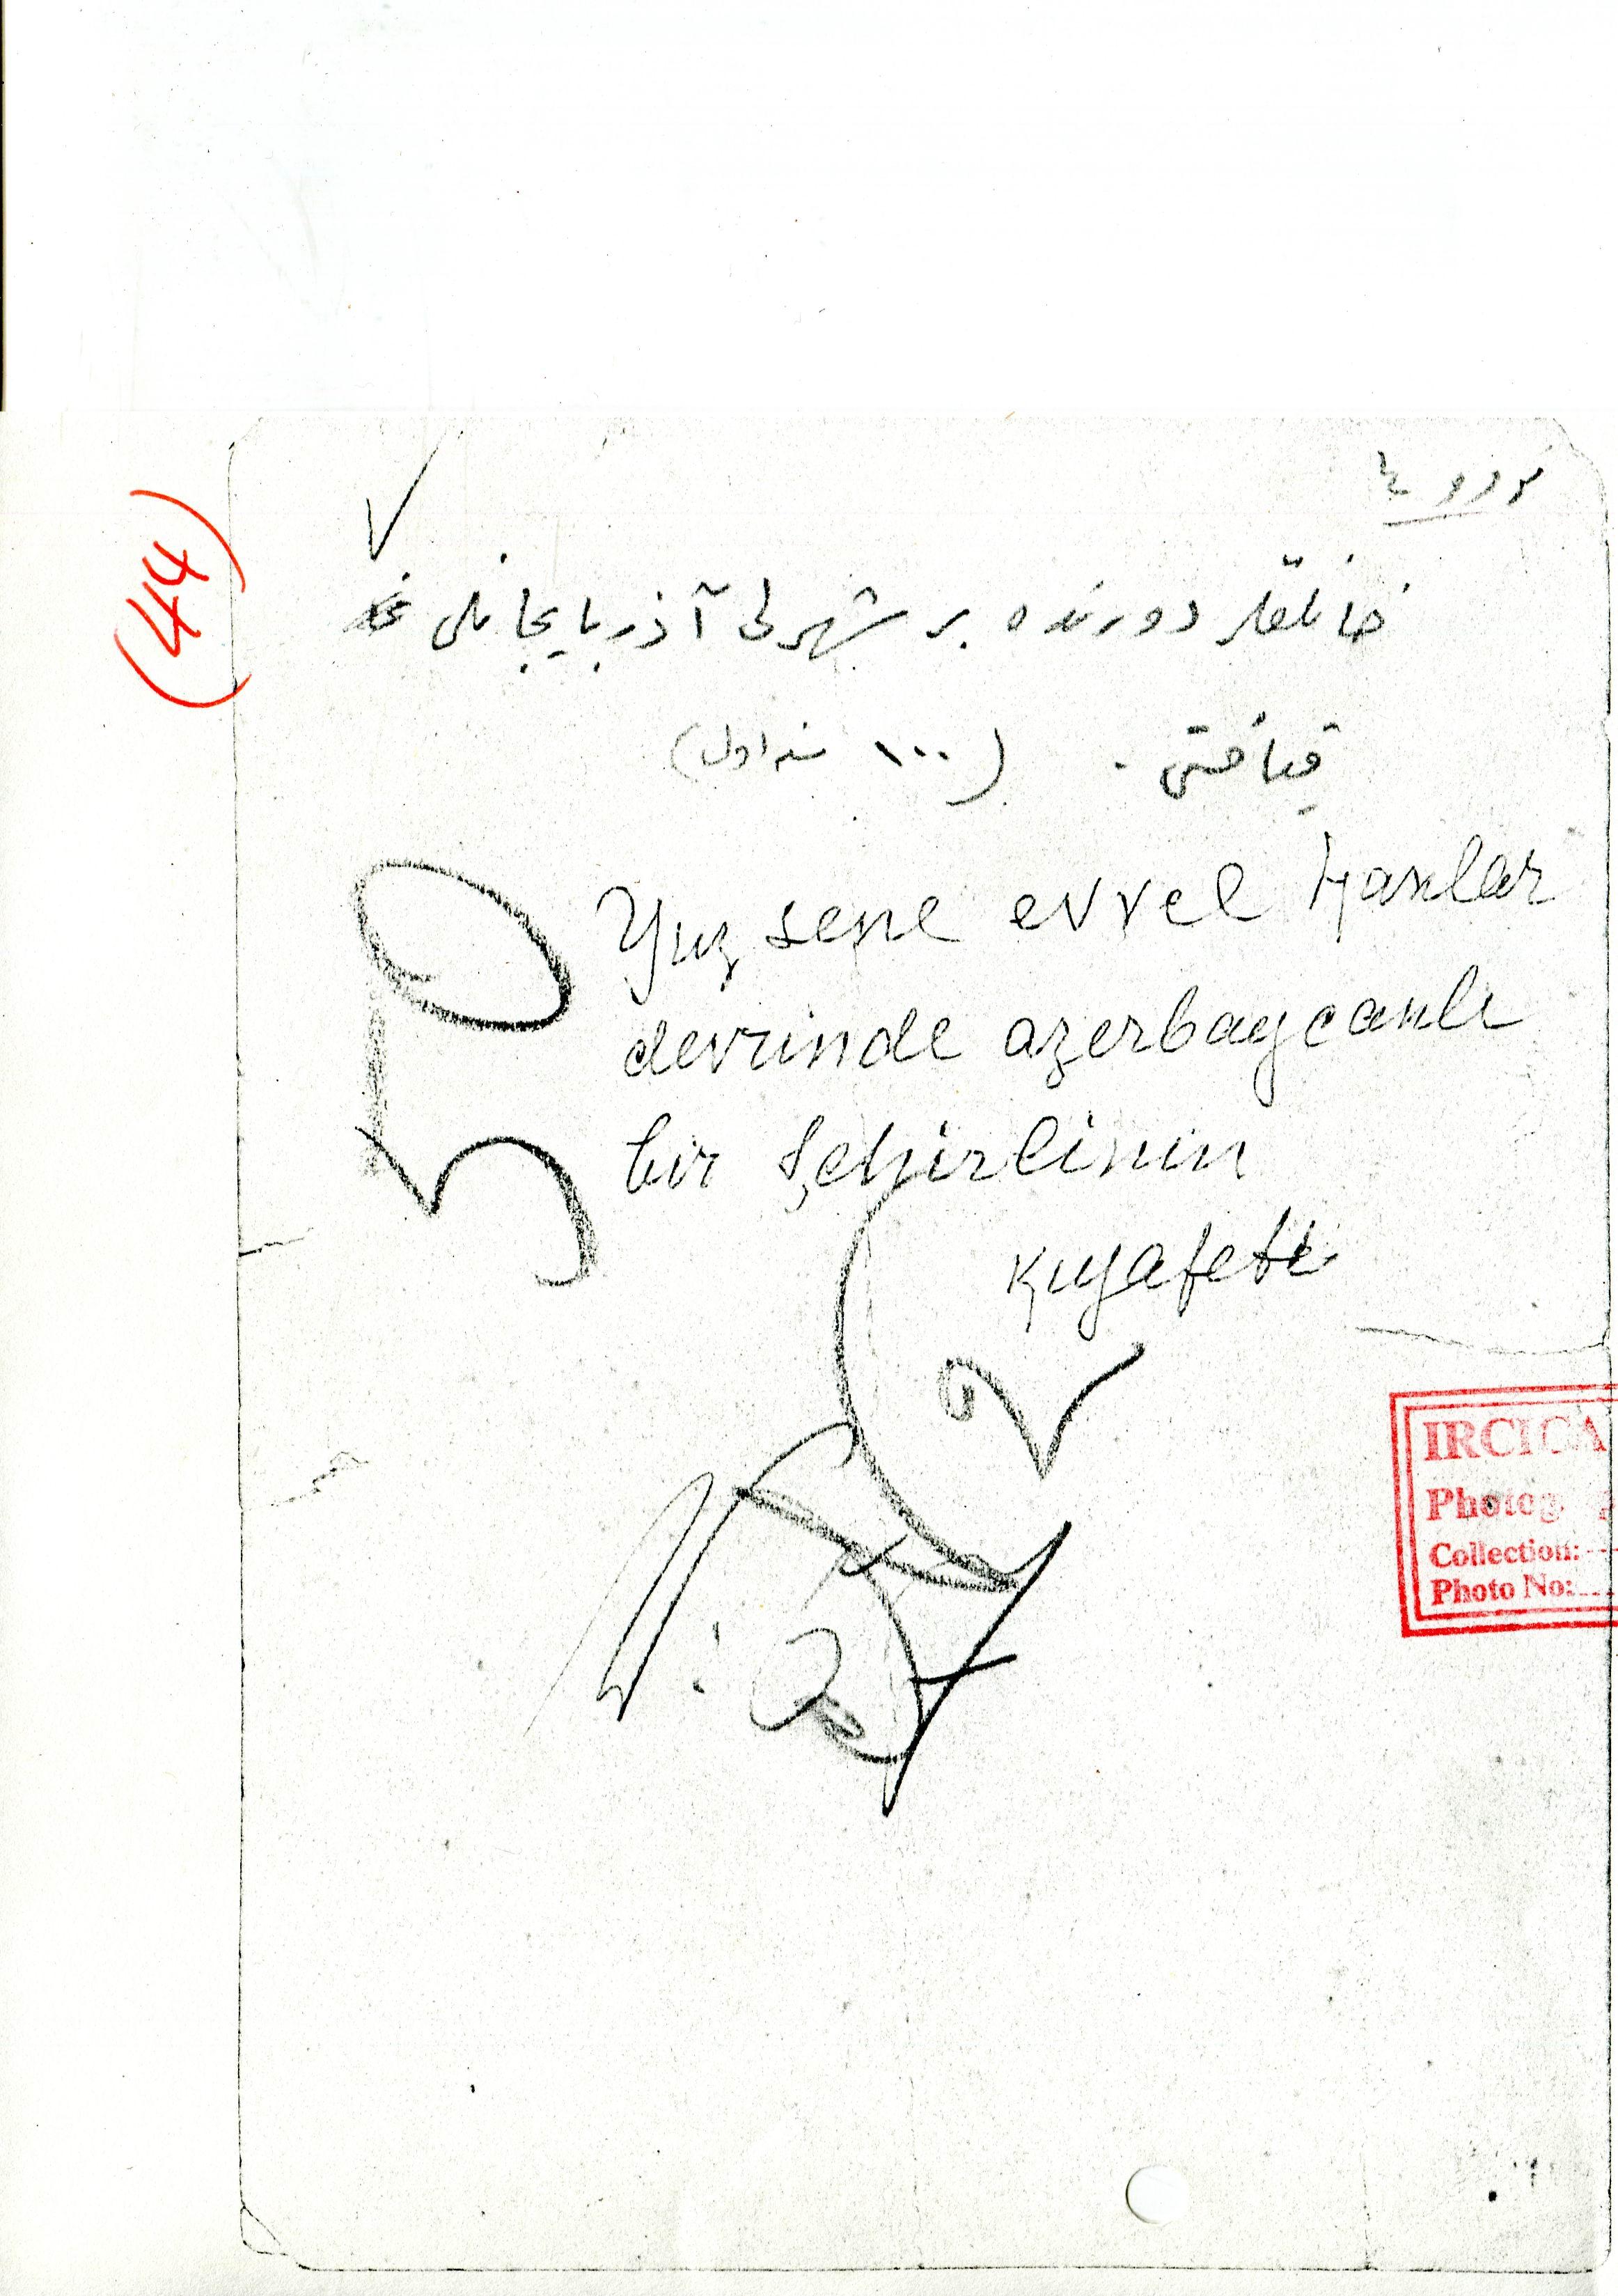 خانلقلر دورنده بر شهرلى آذربايجانلى
قيافتى . (١٠٠ سنه اول)
(44)
Yuz sene evvel Hanlar
devrinde azerbaycanlı
bir Şehirlinin
kıyafeti
IRCICA
Photog
Collection:
Photo No: